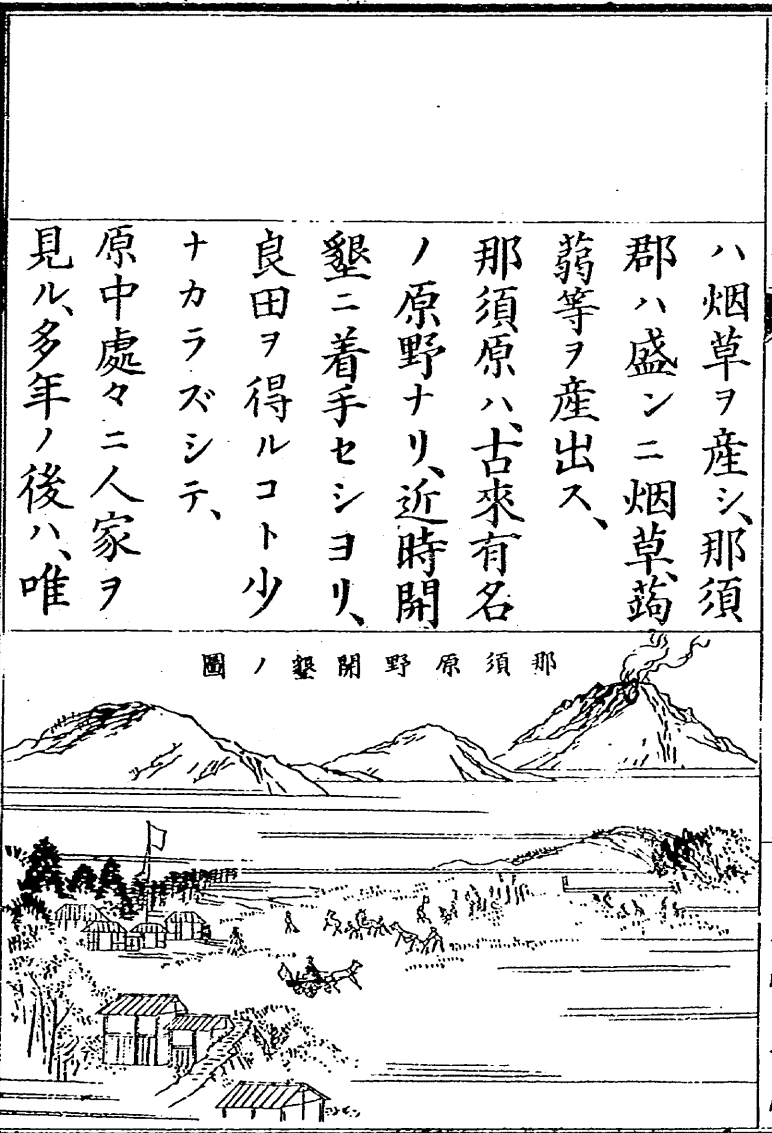 ハ烟草ヲ産シ、那須
郡ハ盛ンニ烟草、蒟
蒻等ヲ産出ス、
那須原ハ、古來有名
ノ原野ナリ、近時開
墾ニ着手セシヨリ、
良田ヲ得ルコト少
ナカラズシテ、
原中處々ニ人家ヲ
見ル、多年ノ後ハ、唯
那須原野開墾ノ圖